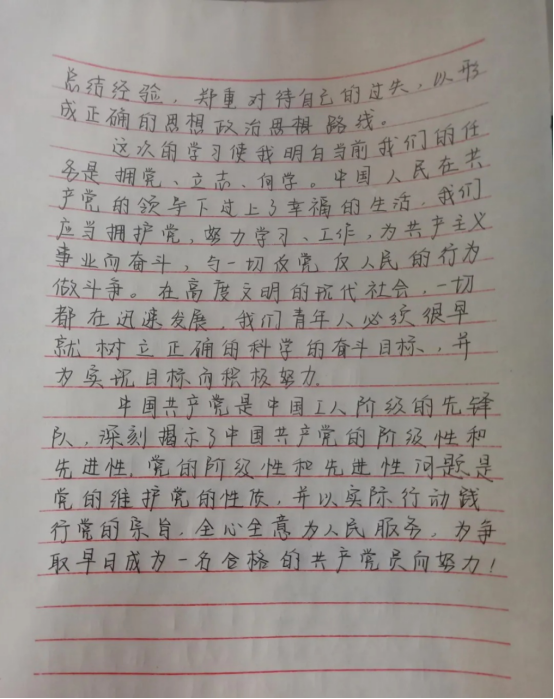 总结经验，郑重对待自己的过失，以形
成正确的思想政治思想路线。
这次的学习使我明白当前我们的任
务是拥党、立志、向学。中国人民在共
产党的领导下过上了幸福的生活，我们
应当拥护党，努力学习、工作，为共产主义
事业而奋斗，与一切反党反人民的行为
做斗争。在高度文明的现代社会，一切
都在迅速发展，我们青年人必须很早
就树立正确的科学的奋斗目标，并
为实现目标而积极努力。
中国共产党是中国工人阶级的先锋
队，深刻揭示了中国共产党的阶级性和
先进性，党的阶级性和先进性问题是
党的维护党的性质，并以实际行动践
行党的宗旨，全心全意为人民服务，为争
取早日成为一名合格的共产党员而努力！